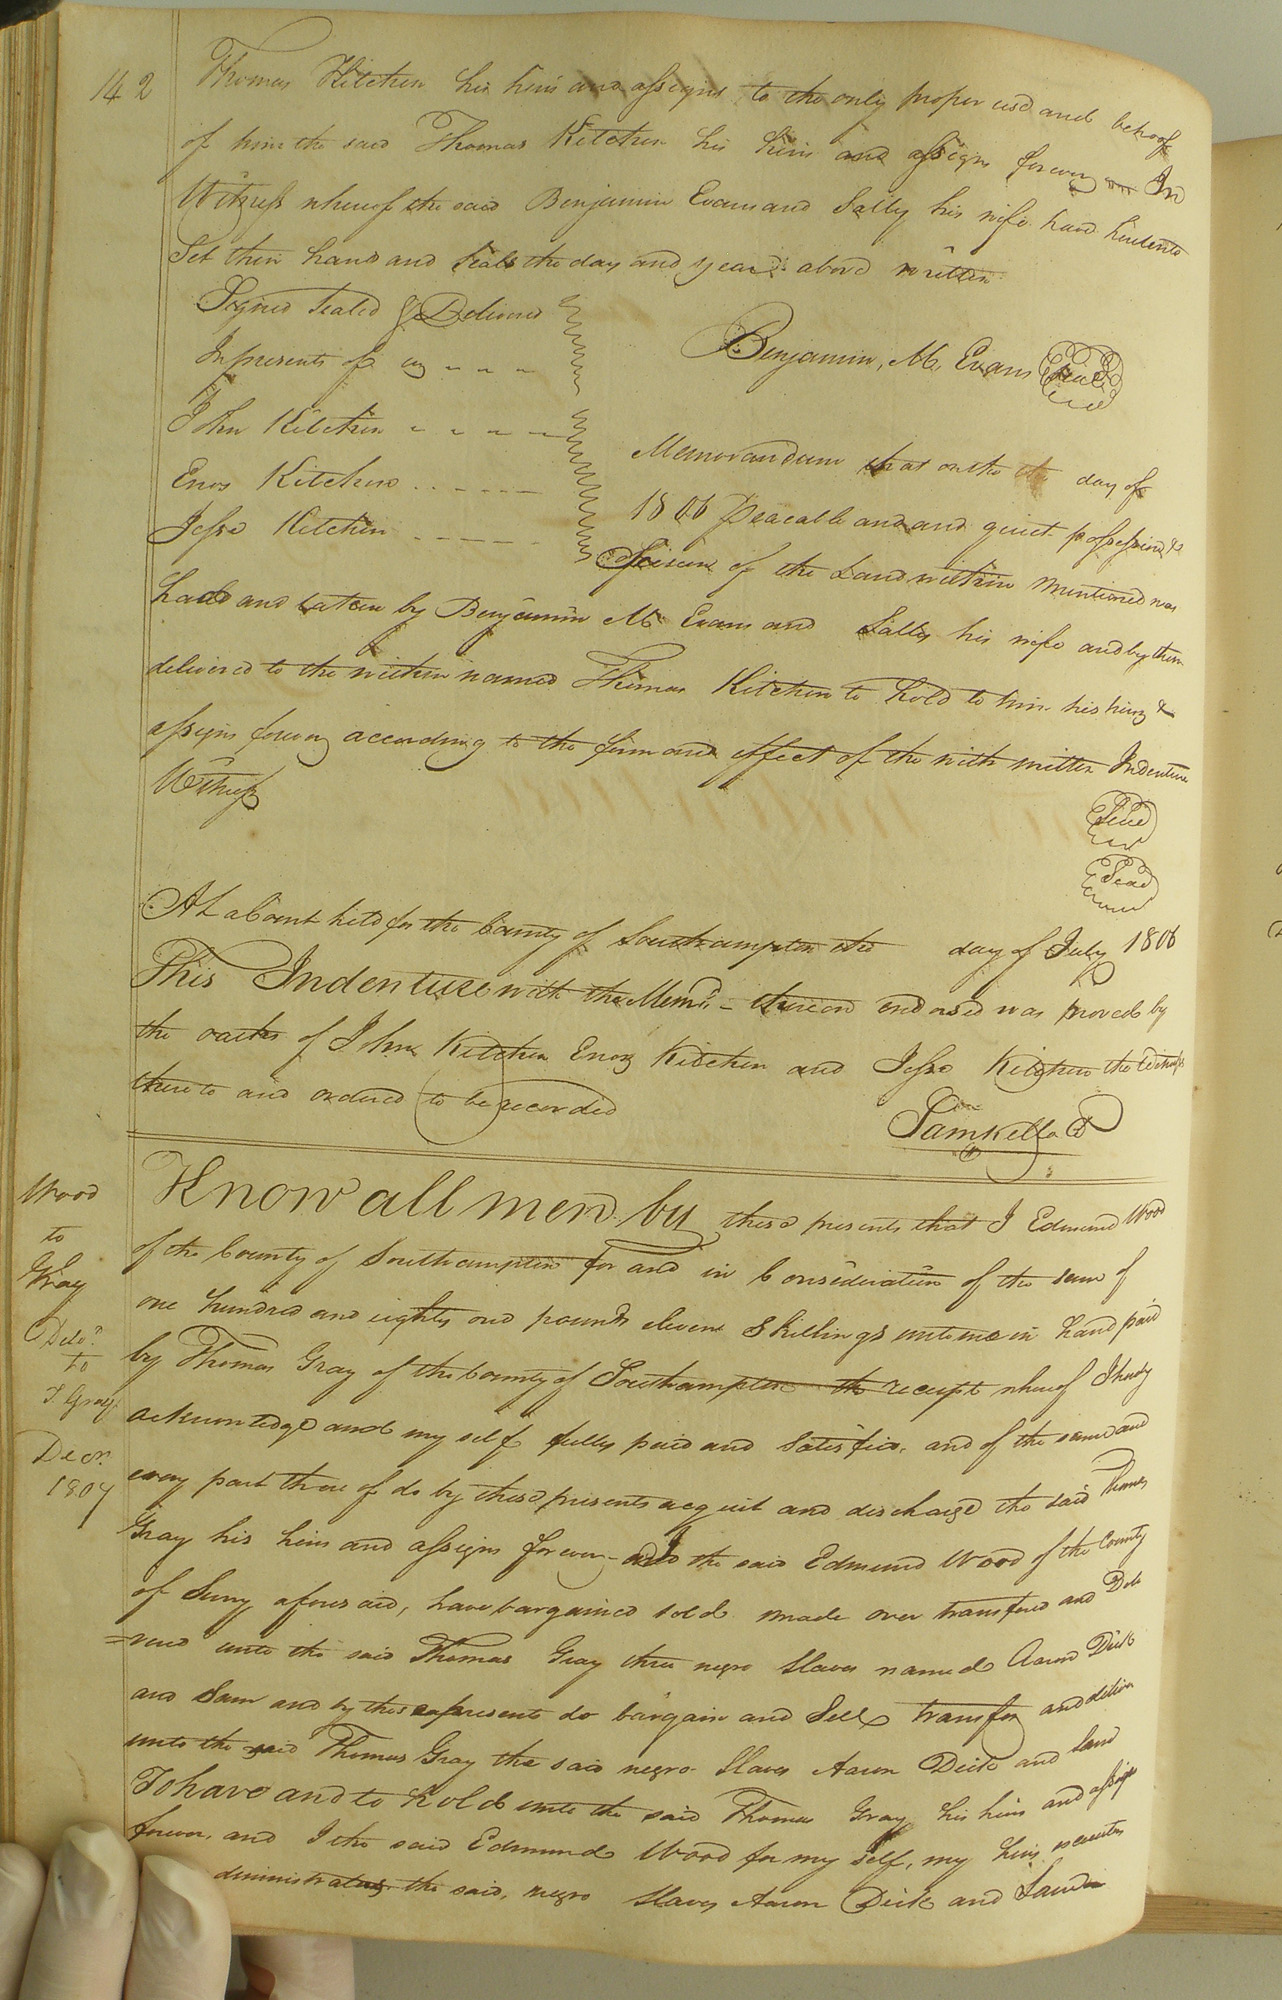 142
Thomas Kitchen his heirs and assigns to the only proper use and behoof
of him the said Thomas Kitchen his heirs and assigns forever In
Witness whereof the said Benjamin Evans and Sally his wife have hereunto
Set their hand and Seals the day and year above written
Signed Sealed & Delivered
In presents of us
Benjamin, M, Evans Seal
John Kitchen
Enos Kitchen
Jesse Kitchen
Memorandum that on the the day of
1806 Peacable and and quiet possession &
Seisen of the Land within mentioned was
had and taken by Benjamin M Evans and Sally his wife and by them
delivered to the within named Thomas Kitchen to hold to him his heirs &
assigns forever according to the form and effect of the with written Indenture
Witness
Seal
Seal
At a Court held for the County of Southampton the day of July 1806
This Indenture with the Memd. thereon endorsed was proved by
the oaths of John Kitchen Enos Kitchen and Jesse Kitchen the Witness
thereto and ordered to be recorded
Sam Kello C
Wood
to
Gray
Deld.
to
T Gray
Decr.
1807
Know all men by these presents that I Edmund Wood
of the County of Southampton for and in Consideration of the sum of
one hundred and eighty one pounds eleven Shillings unto me in hand paid
by Thomas Gray of the County of Southampton the receipt whereof I hereby
acknowledge and my self fully paid and Satisfied, and of the same and
every part there of do by these presents acquit and discharge the said Thomas
Gray his heirs and assigns forever and I the said Edmund Wood of the County
of Surry aforesaid, have bargained sold made over transfered and Deli
=vered unto the said Thomas Gray three negro Slaves named Aaron Dick
and Sam and by these presents do bargain and Sell transfer and deliver
unto the said Thomas Gray the said negro Slaves Aaron Dick and Sam
To have and to hold unto the said Thomas Gray his heirs and assigns
forever, and I the said Edmund Wood for my self, my heirs executors
dministrators the said, negro Slaves Aaron Dick and Sam